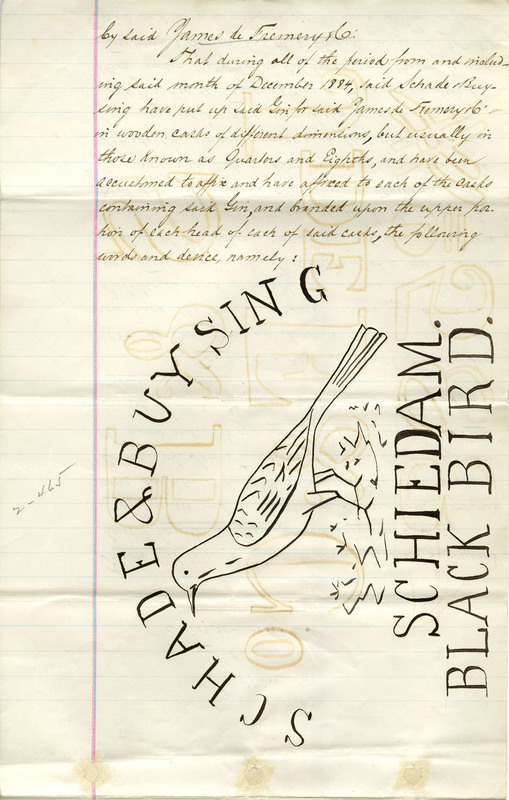 by said James de Fremery & Co:
That during all of the period from and includ-
ing said month of December 1884, said Schade & Buy-
sing have put up said Gin for said James de Fremery & Co
in wooden casks of different dimensions, but usually in
those known as Quarters and Eighths, and have been
accustomed to affix and have affixed to each of the casks
containing said Gin, and branded upon the upper por-
tion of each head of each of said casks, the following
words and device, namely:
SCHADE & BUYSING
SCHIEDAM.
BLACK BIRD.
2-465